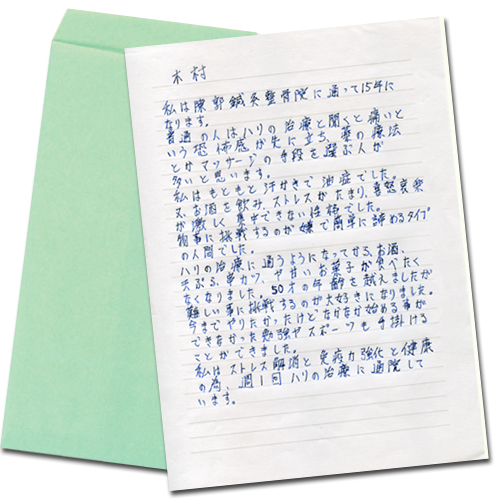 木村
私は陳郭鍼灸整骨院に通って15年に
なります。
普通の人はハリの治療と聞くと痛いと
いう恐怖感が先に立ち、薬の療法
とかマッサージの手段を選ぶ人が
多いと思います。
私はもともと汗かきで油症でした。
又、お酒を飲み、ストレスがたまり、喜怒哀楽
が激しく集中できない性格でした。
物事に挑戦するのが嫌で簡単に諦めるタイプ
の人間でした。
ハリの治療に通うようになってから、お酒、
天ぷら、串カツ、や甘いお菓子が食べたく
なくなりました。50才の年齢を越えましたが
難しい事に挑戦するのが大好きになりました。
今までやりたかったけどなかなか始める事が
できなかった勉強やスポーツも手掛ける
ことができました。
私はストレス解消と免疫力強化と健康
の為、週1回ハリの治療に通院して
います。